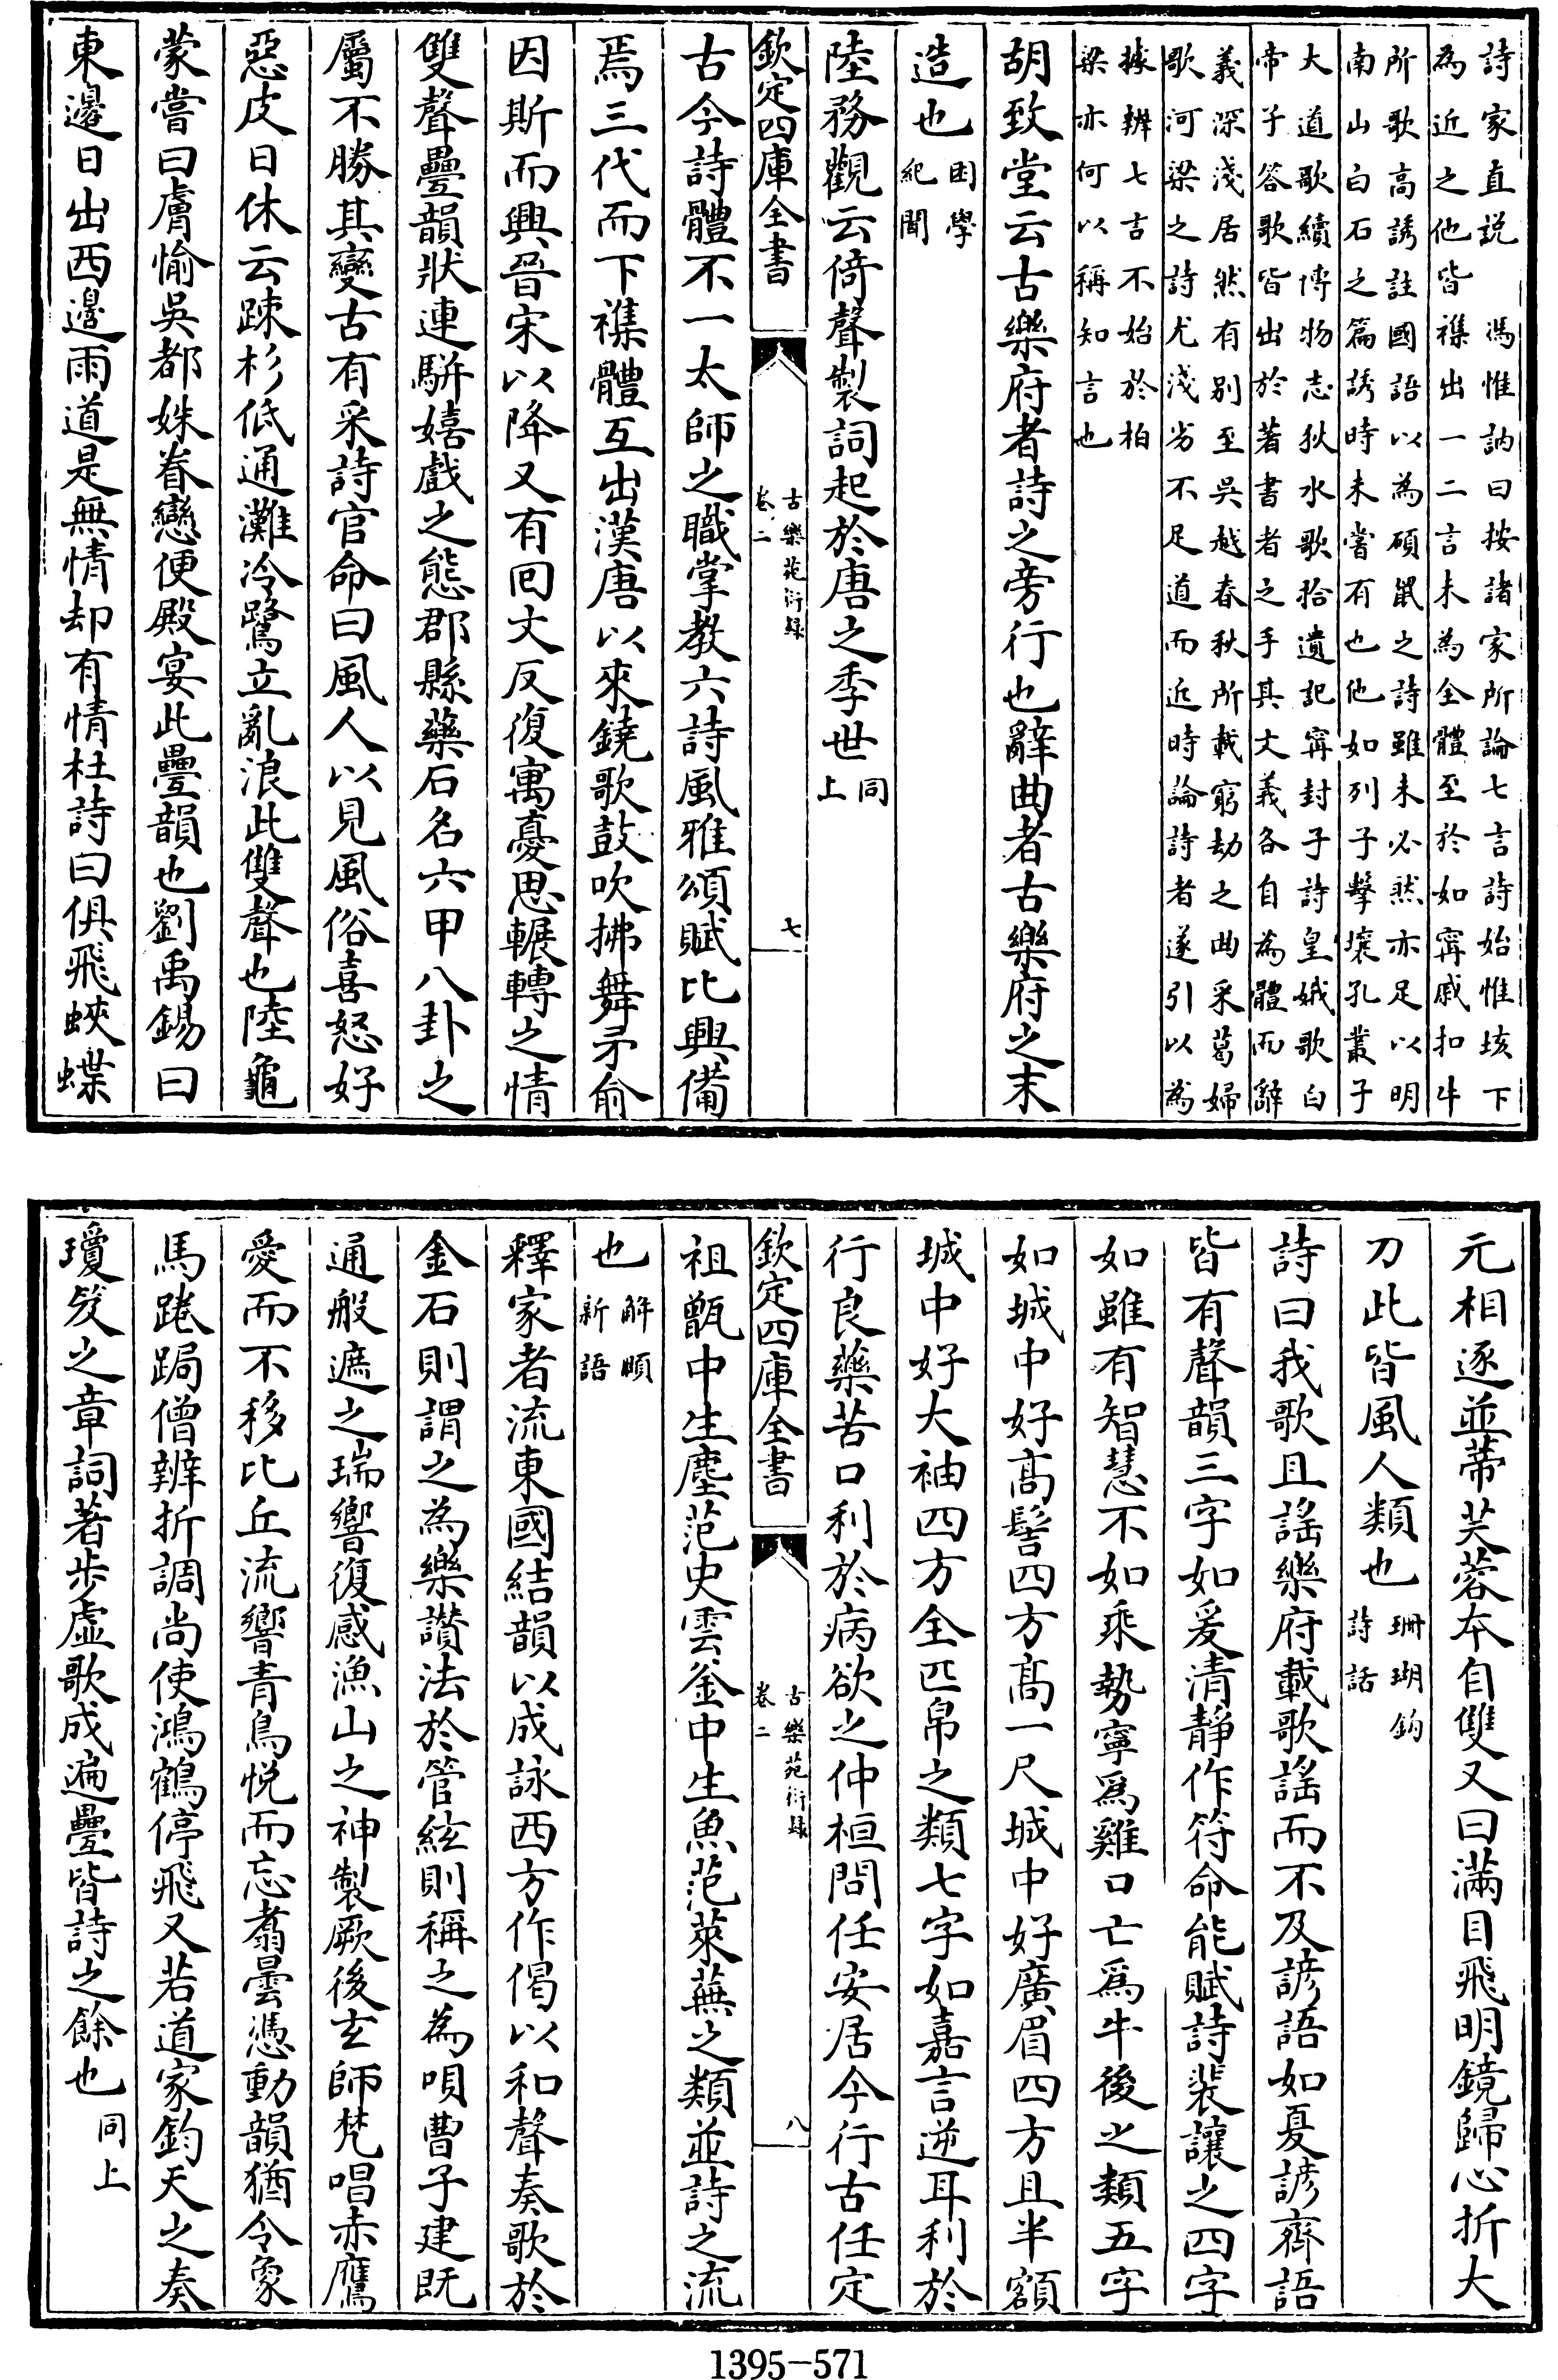 詩家直説　馮惟訥曰按諸家所論七言詩始惟垓下
為近之他皆襍出一二言未為全體至於如甯戚扣牛
所歌高誘註國語以為碩鼠之詩雖未必然亦足以明
南山白石之篇誘時未嘗有也他如列子擊壤孔叢子
大道歌續博物志狄水歌拾遺記甯封子詩皇娥歌白
帝子答歌皆出於著書者之手其文義各自為體而辭
義深淺居然有别至吳越春秋所載窮劫之曲采葛婦
歌河梁之詩尤淺劣不足道而近時論詩者遂引以為
據辨七言不始於柏
梁亦何以稱知言也
胡致堂云古樂府者詩之旁行也辭曲者古樂府之末
造也困學
紀聞
陸務觀云倚聲製詞起於唐之季世同
上
欽定四庫全書
古樂苑衍録
卷二
七
古今詩體不一太師之職掌教六詩風雅頌賦比興備
焉三代而下襍體互出漢唐以來鐃歌鼓吹拂舞矛俞
因斯而興晉宋以降又有回文反復寓憂思輾轉之情
雙聲疊韻狀連騈嬉戲之態郡縣藥石名六甲八卦之
屬不勝其變古有采詩官命曰風人以見風俗喜怒好
惡皮日休云疎杉低通灘冷鷺立亂浪此雙聲也陸龜
蒙嘗曰膚愉吳都姝眷戀便殿宴此疊韻也劉禹錫曰
東邊日出西邊雨道是無情却有情杜詩曰俱飛蛺蝶
元相逐並蒂芙蓉本自雙又曰滿目飛明鏡歸心折大
刀此皆風人類也珊瑚鈎
詩話
詩曰我歌且謡樂府載歌謡而不及諺語如夏諺齊語
皆有聲韻三字如爰清靜作符命能賦詩裴讓之四字
如雖有智慧不如乘勢寧爲雞口亡爲牛後之類五字
如城中好高髻四方高一尺城中好廣眉四方且半額
城中好大袖四方全匹帛之類七字如嘉言逆耳利於
行良藥苦口利於病欲之仲桓問任安居今行古任定
欽定四庫全書
古樂苑衍録
卷二
八
祖甑中生塵范史雲釜中生魚范萊蕪之類並詩之流
也解頤
新語
釋家者流東國結韻以成詠西方作偈以和聲奏歌於
金石則謂之為樂讚法於管絃則稱之為唄曹子建既
通般遮之瑞響復感漁山之神製厥後玄師梵唱赤鷹
愛而不移比丘流響青鳥悦而忘翥曇憑動韻猶令象
馬踡跼僧辨折調尚使鴻鶴停飛又若道家鈞天之奏
瓊笈之章詞著步虛歌成遍疊皆詩之餘也同上
1395-571